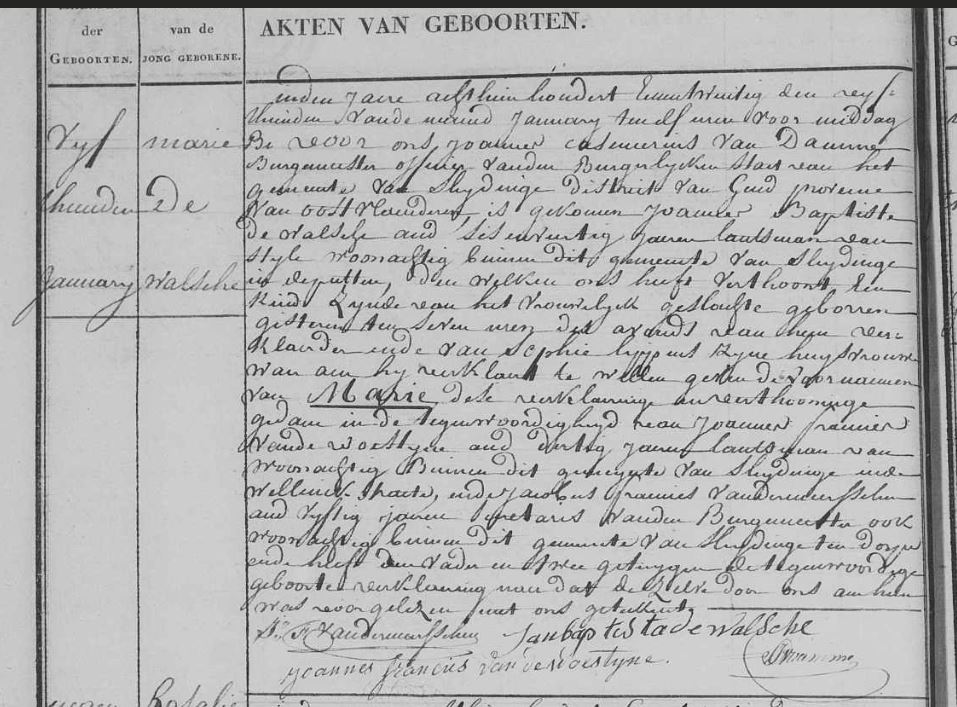 der
GEBOORTEN.
van de
JONG GEBORENE.
AKTEN VAN GEBOORTEN.
Vyf
thienden
January
marie
De
walsche
inden Jaere achthien hondert Eenentwintig den vyf-
thienden Vande maend January ten elf uren Voor middag
Be voor ons Joannes Casemirus Van Damme
Burgemeester officier Vanden Burgerlyken Staet van het
gemeente Van Sleydinge District Van Gend provencie
Van oost Vlaenderen is gekomen Joannes Baptiste
De walsche oud sesenveertig Jaeren lantsman van
style woonachtig binnen dit gemeente Van Sleydinge
in deputten, den welken ons heeft Verthoont Een
Kind Zynde van het Vrouwelyk geslachte geborren
gisteren ten seven uren des avonds van hem ver-
Klaerder ende Van Sophie Zyne huysvrouwe
waer aen hy verklaert te willen geven de Voornaemen
van Marie, dese verklaeringe en verthooninge
gedaen in de tegenwoordigheyd van Joannes francies
Vande woestyne oud dertig Jaeren lantsman van
woonachtig Binnen dit gemeente Van Sleydinge inde
wellinck straete, ende Jacobus francies Vandermeersschen
oud Vyftig Jaeren secretaris Vanden Burgemeester ook
woonachtig binnen dit gemeente Van Sleydinge ten dorpe
ende heeft den Vader en twee getuygen de tegenwoordige
geboorte verklaering naer dat de Zelve door ons aen hun
was voor gelezen met ons geteekent,
Vandermeersschen Jan baptesta de walsche
Joannes francies Van de Woestyne. Vandamme
Rosalie